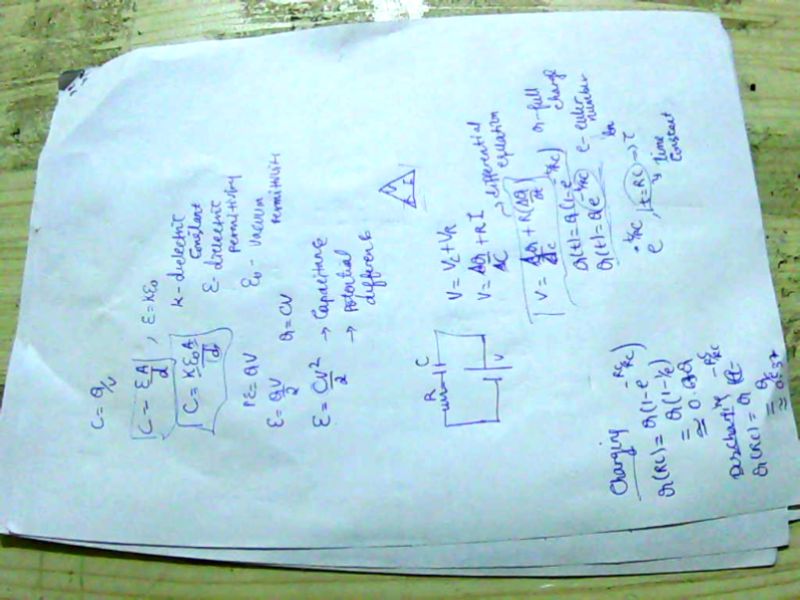 C = Q/V
C = εA/d , ε = kε₀
C = kε₀A/d
k - dielectric constant
ε - dielectric permittivity
ε₀ - vacuum permittivity
PE = QV
E = QV/2 Q = CV
E = CV²/2 → Capacitance
→ Potential difference
R C
V
V = Vc + VR
V = ΔQ/ΔC + RI
→ differential equation
Q(t) = Q(1 - e^-t/RC) Q - full charge
Q(t) = Q(e^-t/RC) e - euler number
t = RC → τ
↳ Time constant
Charging
Q(RC) = Q(1 - e^-RC/RC)
= Q(1 - 1/e)
Discharging